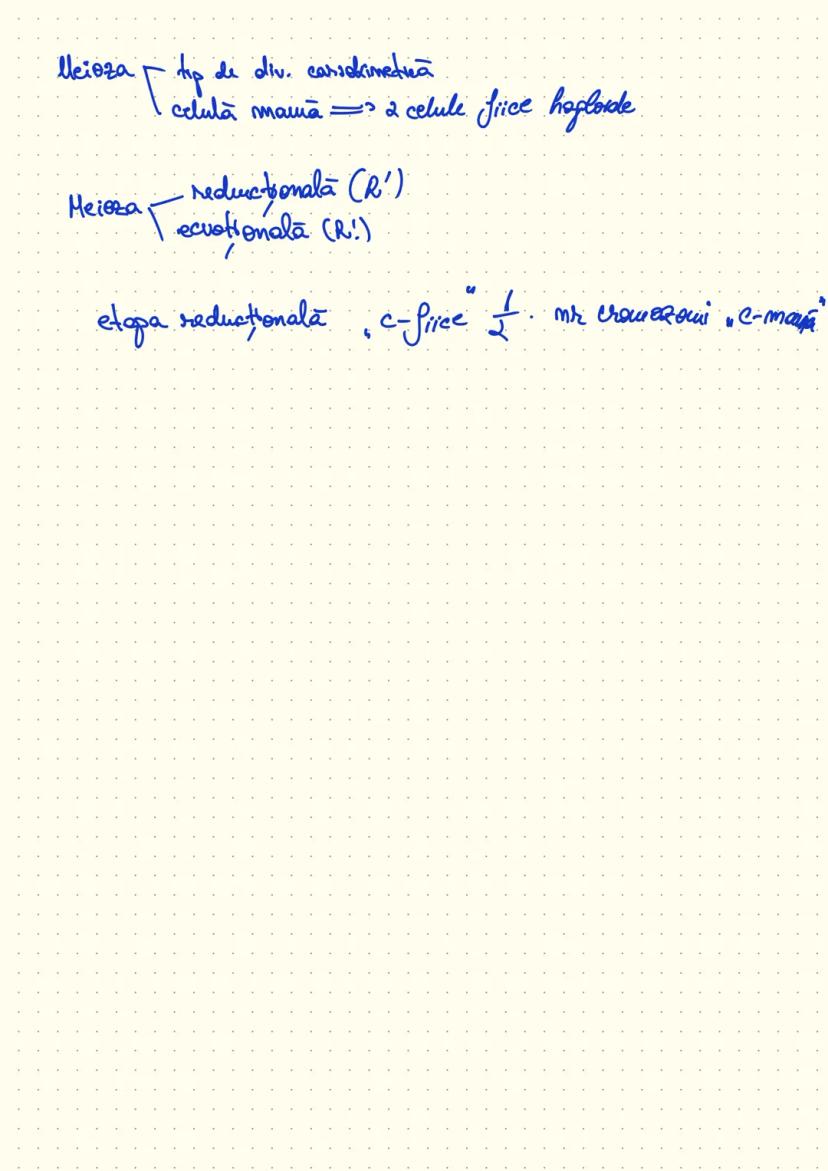 Meioza tip de div. cariokinetică
celulă mamă => 2 celule fiice haploide
Meioza reducțională (R!)
ecuațională (R!)
etapa reducțională „c-fiice" 1/2 · nr cromozomi „c-mamă"